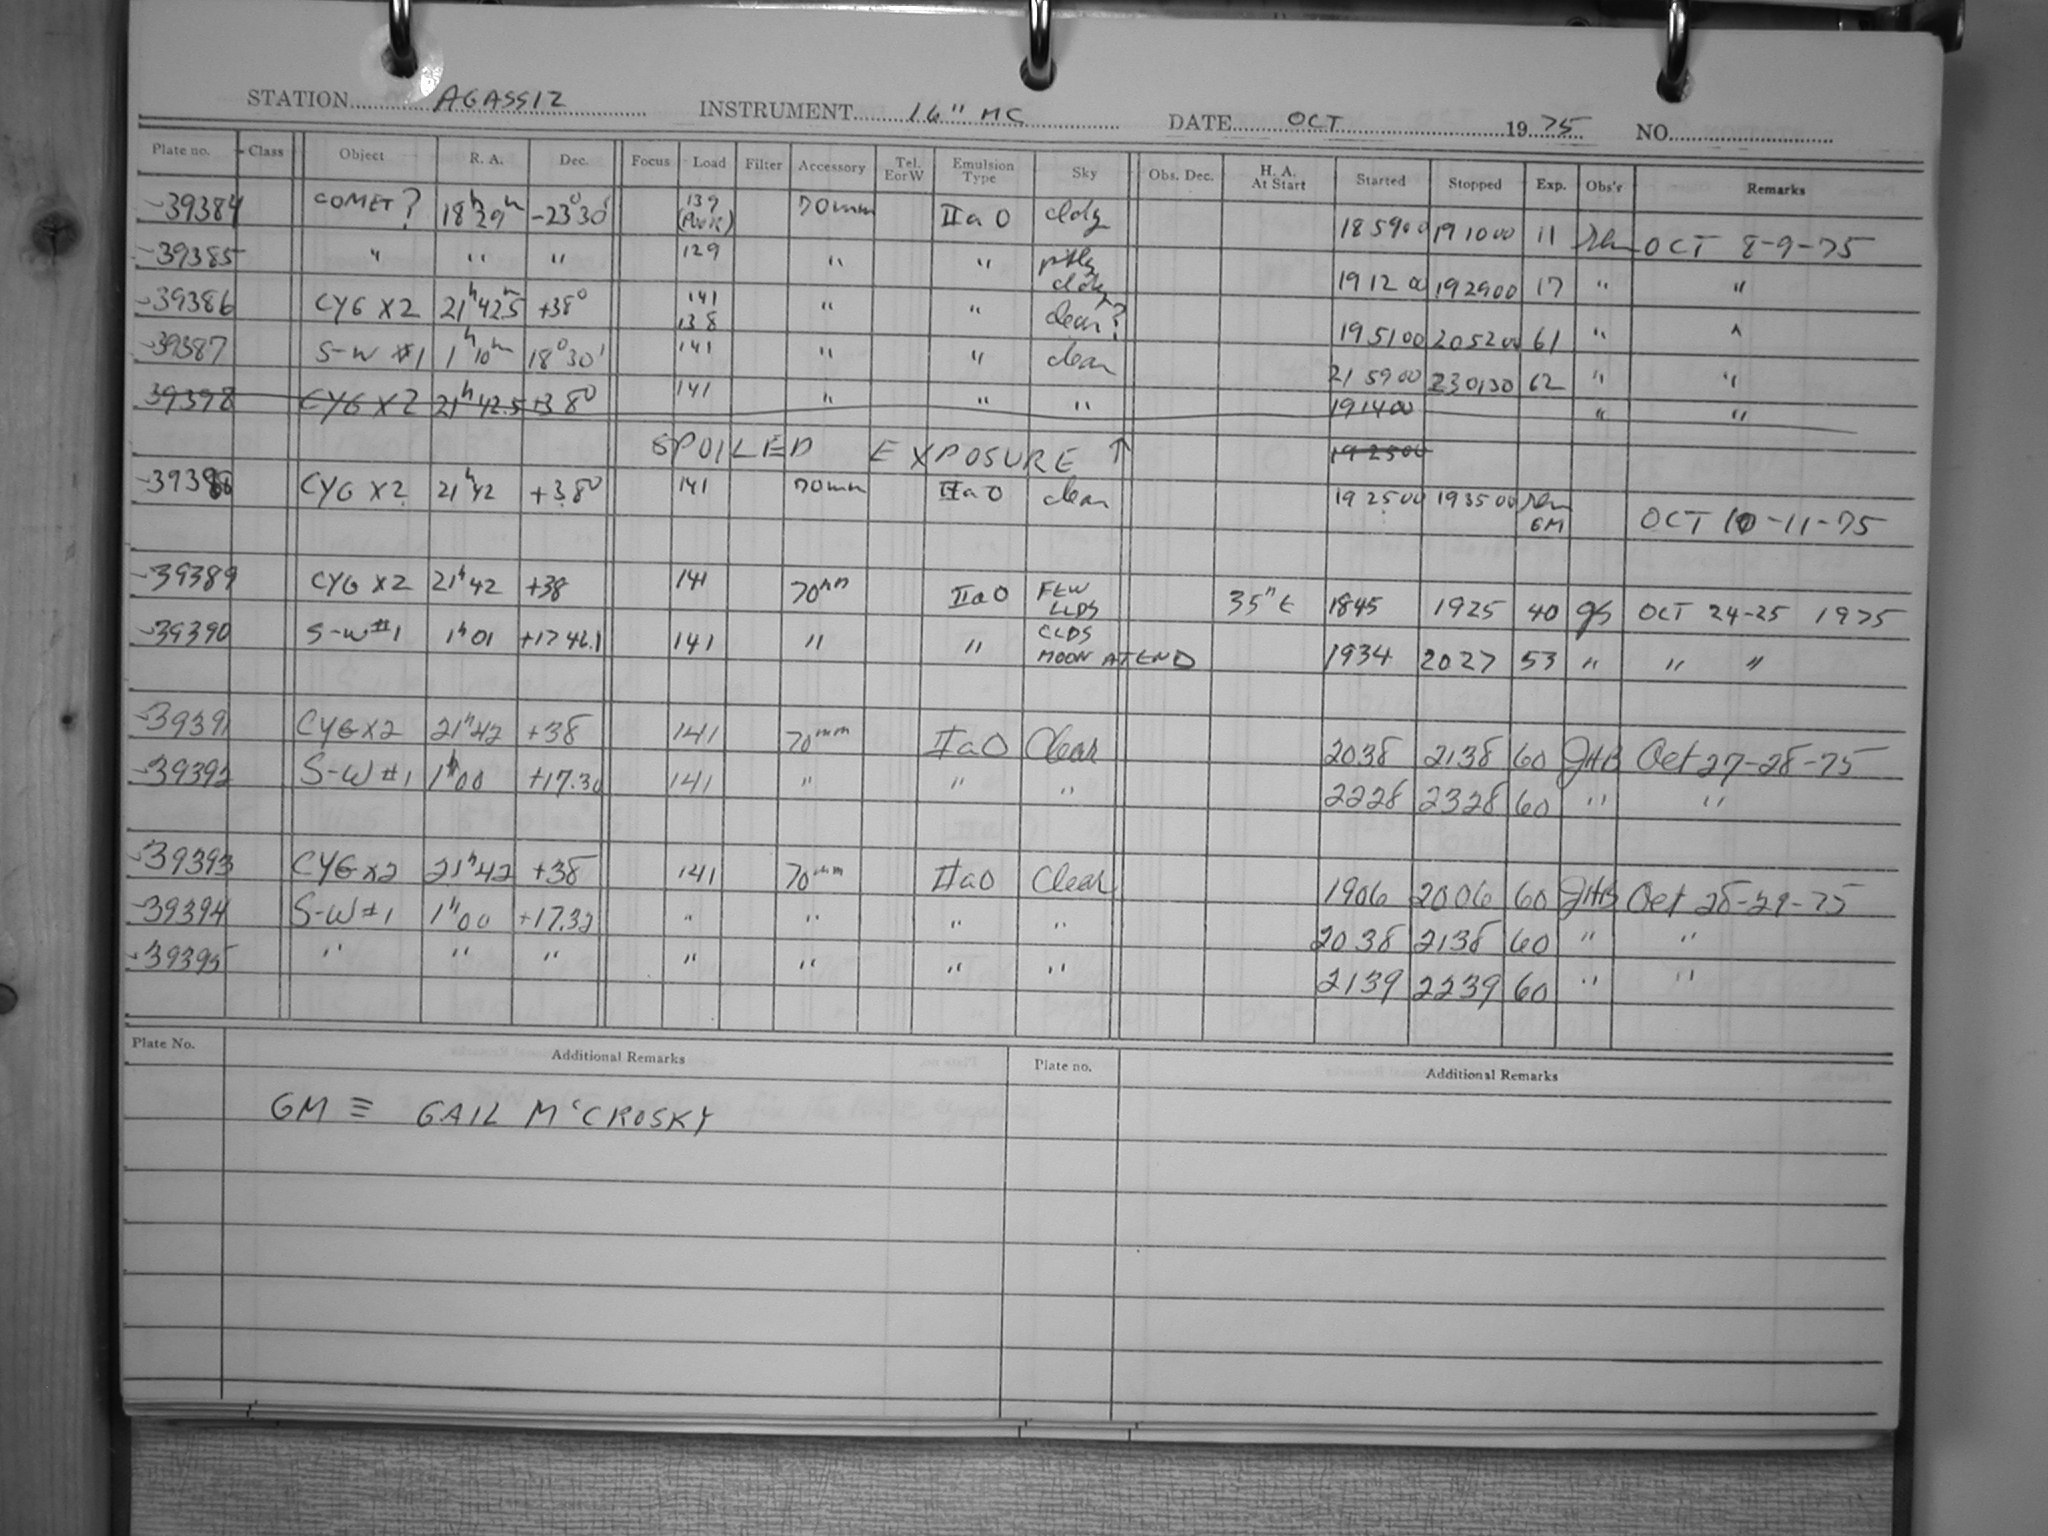 STATION AGASSIZ INSTRUMENT 16" MC DATE OCT 1975 NO.
Plate no. Class Object R. A. Dec. Focus Load Filter Accessory Tel. E or W Emulsion Type Sky Obs. Dec. H. A. At Start Started Stopped Exp. Obs'r Remarks
-39384 COMET? 18h 29m -23° 30' 139 (POOR) 70mm IIaO cldy 185900 191000 11 OCT 8-9-75
-39385 " " " 129 " " ptly cldy 191200 192900 17 " "
-39386 CYG X2 21h 42.5m +38° 141 138 " " clear? 195100 205200 61 " "
-39387 S-W #1 1h 10m 18° 30' 141 " " clear 215900 230130 62 " "
39398 CYG X2 21h 42.5 +38° 141 " " " 191400 " "
SPOILED EXPOSURE ↑ 192500
-39388 CYG X2 21h 42 +38° 141 70mm IIaO clear 192500 193500 GM OCT 10-11-75
-39389 CYG X2 21h 42 +38 141 70mm IIaO FEW CLDS 35m E 1845 1925 40 gs OCT 24-25 1975
-39390 S-W #1 1h 01 +17 42.1 141 " " CLDS MOON AT END 1934 2027 53 " " "
-39391 CYG X2 21h 42 +38 141 70mm IIaO Clear 2038 2138 60 JHB Oct 27-28-75
-39392 S-W #1 1h 00 +17.30 141 " " " 2228 2328 60 " "
-39393 CYG X2 21h 42 +38 141 70mm IIaO Clear 1906 2006 60 JHB Oct 28-29-75
-39394 S-W #1 1h 00 +17.32 " " " " 2038 2138 60 " "
-39395 " " " " " " " 2139 2239 60 " "
Plate No. Additional Remarks Plate no. Additional Remarks
GM ≡ GAIL McCROSKY